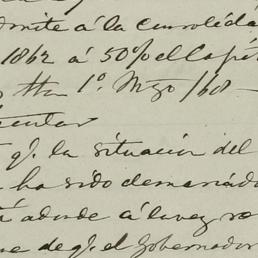 admite á la consolida
1862 á 50% el Capi
1º Mzo/68 —
cular
qe. la situacion del
ha sido demaciado
adonde á la vez
que de qe. el Gobernador